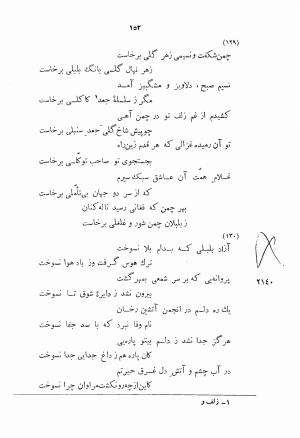 ۱۵۳
(۱۲۹)
چمن شکفت و نسیمی زهر گلی برخاست
زهر نهال گلسی بانگ بلبلی برخاست
نسیم صبح، دلاویز و مشگبیز آمد
مگر ز سلسلهٔ جعد¹ کاکلسی برخاست
کشیدم از غم زلف تو در چمن آهی
چو پیش شاخ گلی جعد سنبلی برخاست
تو آن رمیده غزالی که هر قدم زین راه
بجستجوی تو صاحب توکلی برخاست
غلام همّت آن عاشق سبک سیرم
که از سر دو جهان بی‌تأملی برخاست
بهر چمن که فغانی رسید ناله‌کنان
ز بلبلان چمن شور و غلغلی برخاست
(۱۳۰)
آزاد بلبلی کسه بدام بلا نسوخت
ترك هوس گرفت وز باد هوا نسوخت
۲۱۴۰
پروانه‌یی که بر سر شمعی بمهر گشت
بیرون نشد ز دایرهٔ شوق تا نسوخت
یك ره دلم در انجمن آتشین رخان
نام وفا نبرد که با سد جفا نسوخت
هرگز جدا نشد ز دلم بیتو پاره‌یی
کان پاره هم ز داغ جدایی جدا نسوخت
در آب چشم و آتش دل غرق حیرتم
کاین از چه رو نگشت مراوان چرا نسوخت
۱- زلف و